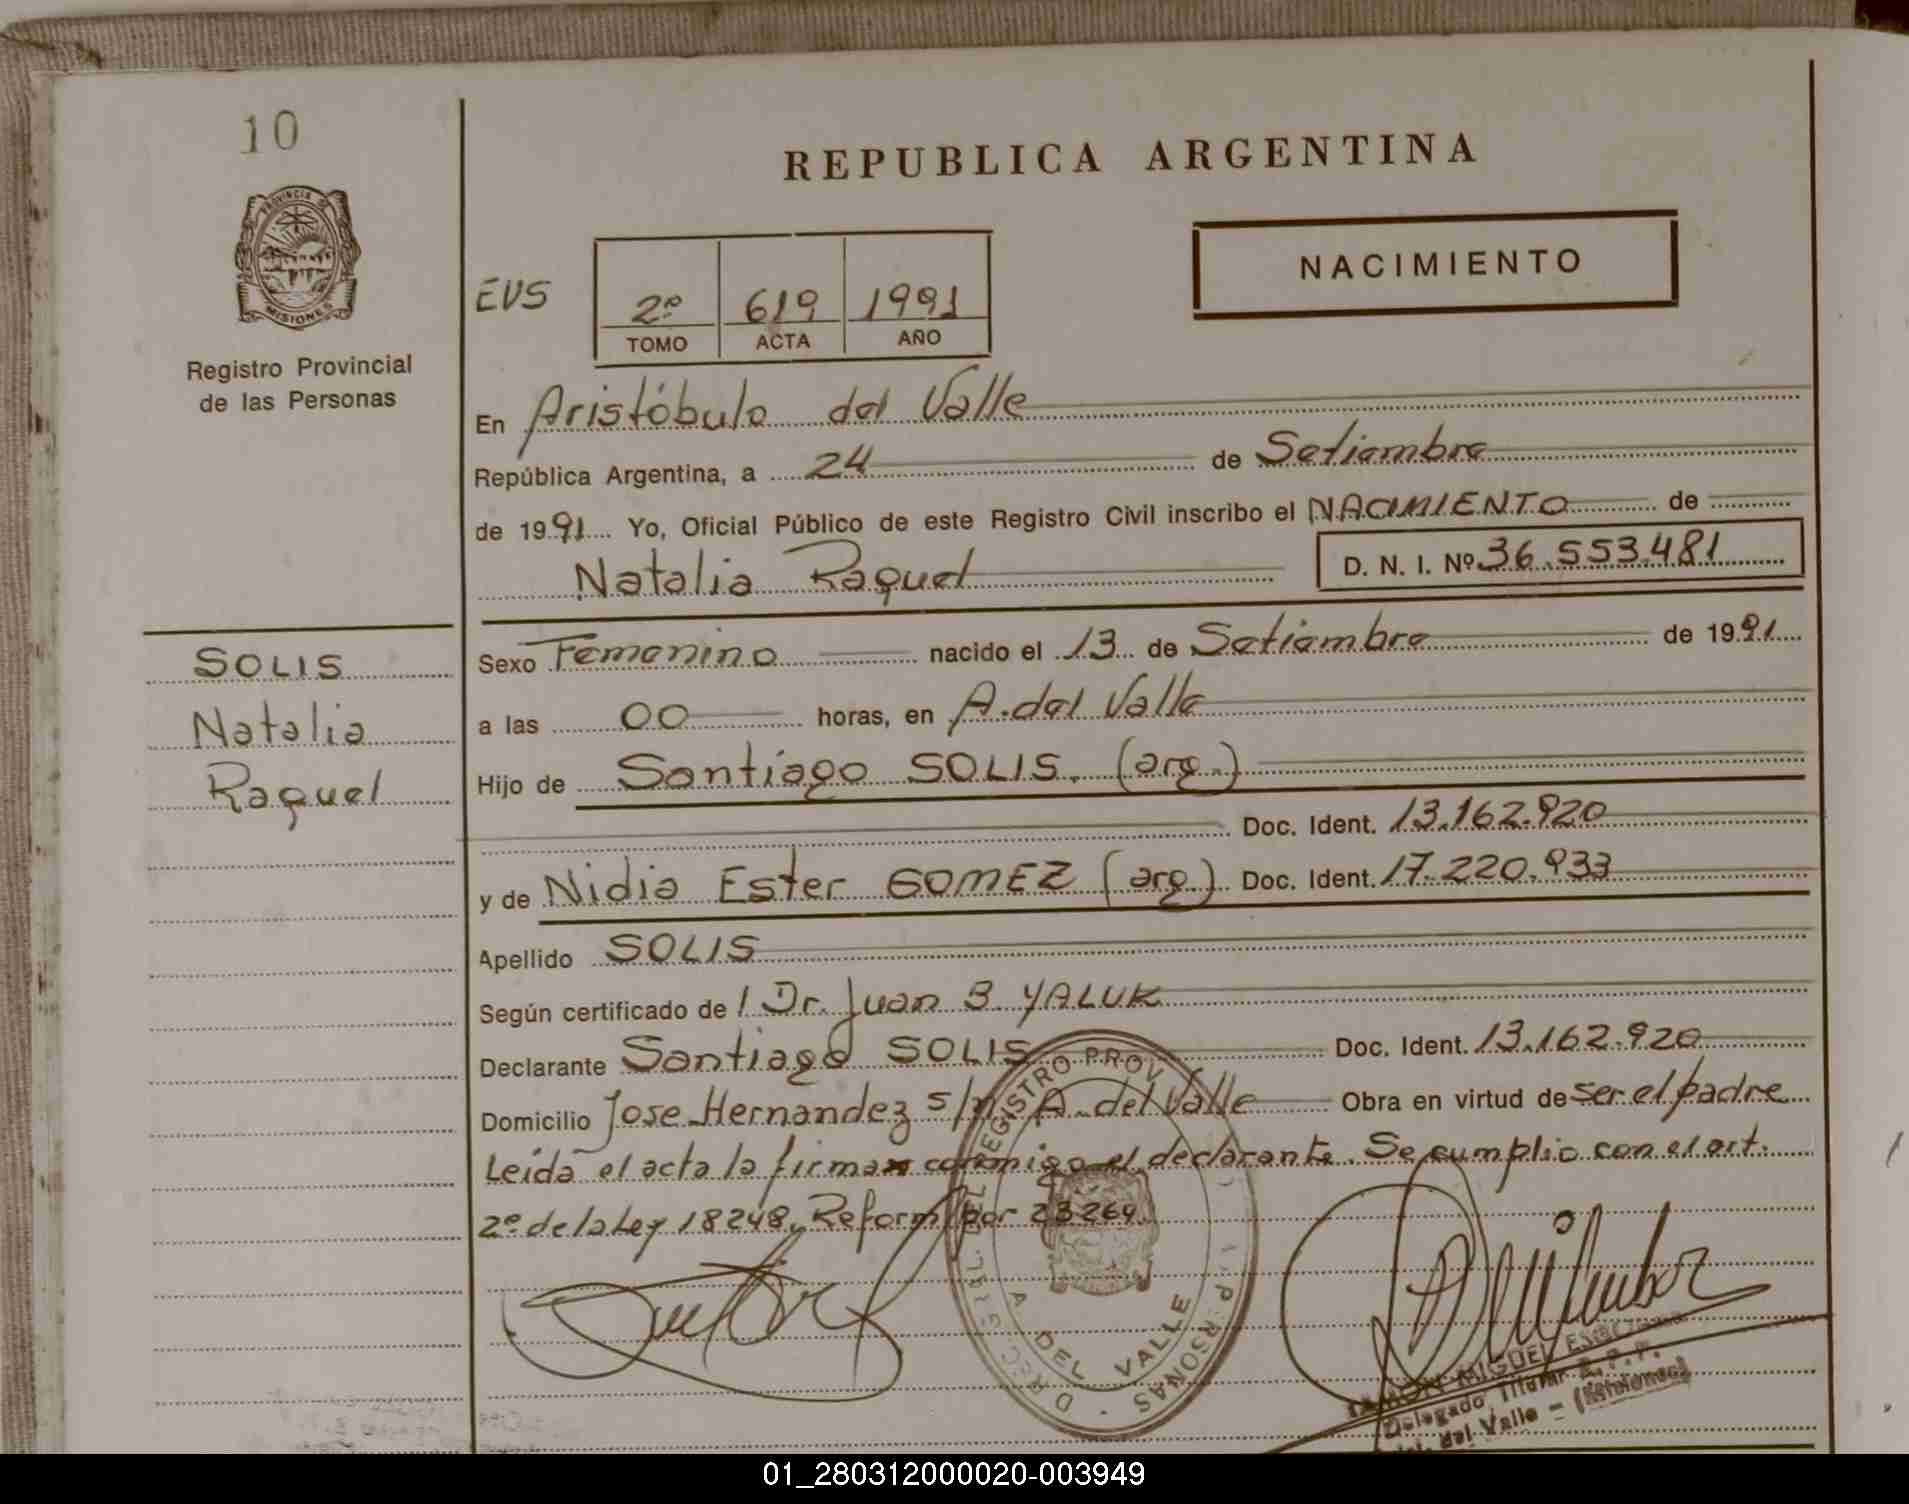 10
REPUBLICA ARGENTINA
PROVINCIA DE
MISIONES
NACIMIENTO
EVS
2º 619 1991
TOMO ACTA AÑO
Registro Provincial
de las Personas
En Aristóbulo del Valle
República Argentina, a 24 de Setiembre
de 1991 Yo, Oficial Público de este Registro Civil inscribo el NACIMIENTO de
Natalia Raquel D. N. I. Nº 36.553.481
SOLIS
Natalia
Raquel
Sexo Femenino nacido el 13 de Setiembre de 1991
a las 00 horas, en A. del Valle
Hijo de Santiago SOLIS. (arg.)
Doc. Ident. 13.162.920
y de Nidia Ester GOMEZ (arg.) Doc. Ident. 17.220.933
Apellido SOLIS
Según certificado de / Dr. Juan B YALUK
Declarante Santiago SOLIS Doc. Ident. 13.162.920
Domicilio Jose Hernandez s/n A. del Valle Obra en virtud de ser el padre
Leida el acta la firma conmigo el declarante. Se cumplio con el art.
2º de la Ley 18248, Reform por 23264.
REGISTRO PROV
PERSONAS
A DEL VALLE
MIGUEL
Delegado Titular R.P.P.
del Valle - (Misiones)
01_280312000020-003949